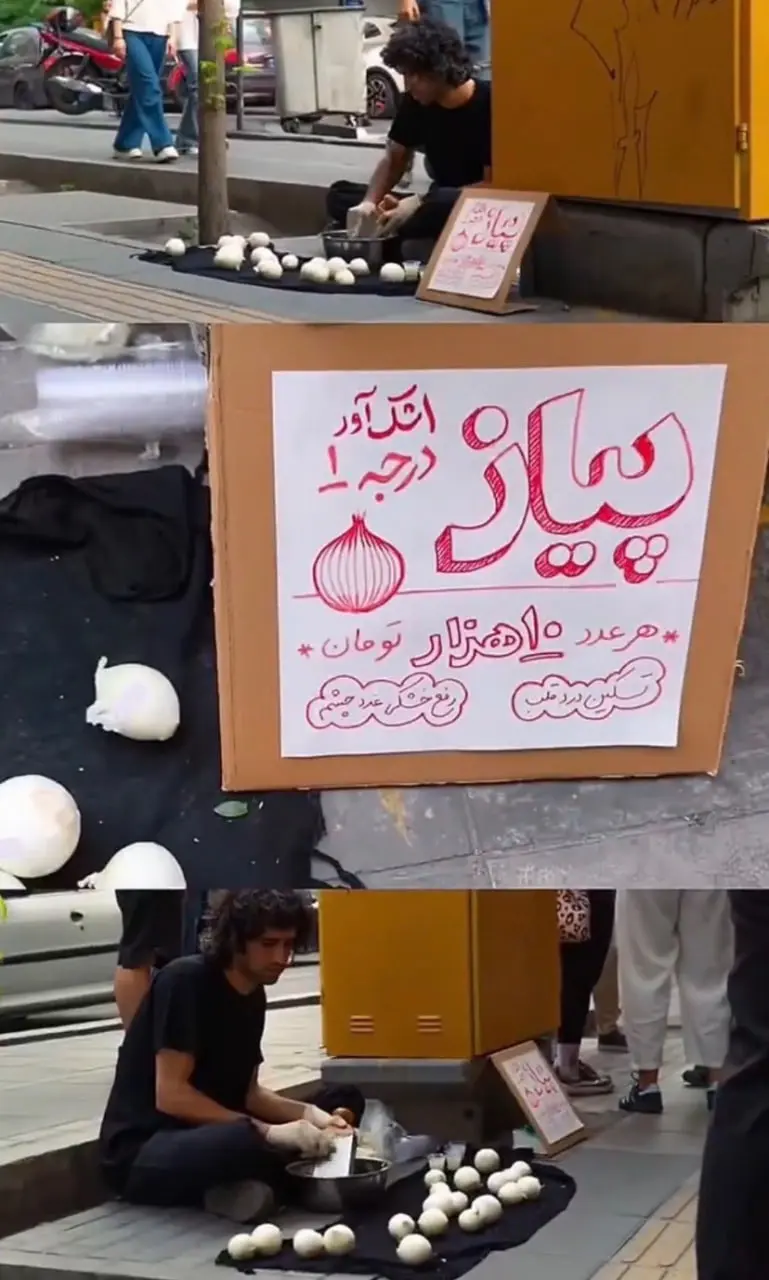 پیاز
اشک‌آور
درجه ۱
* هر عدد ۱۰ هزار تومان *
تسکین درد قلب
رفع خشکی غدد چشم